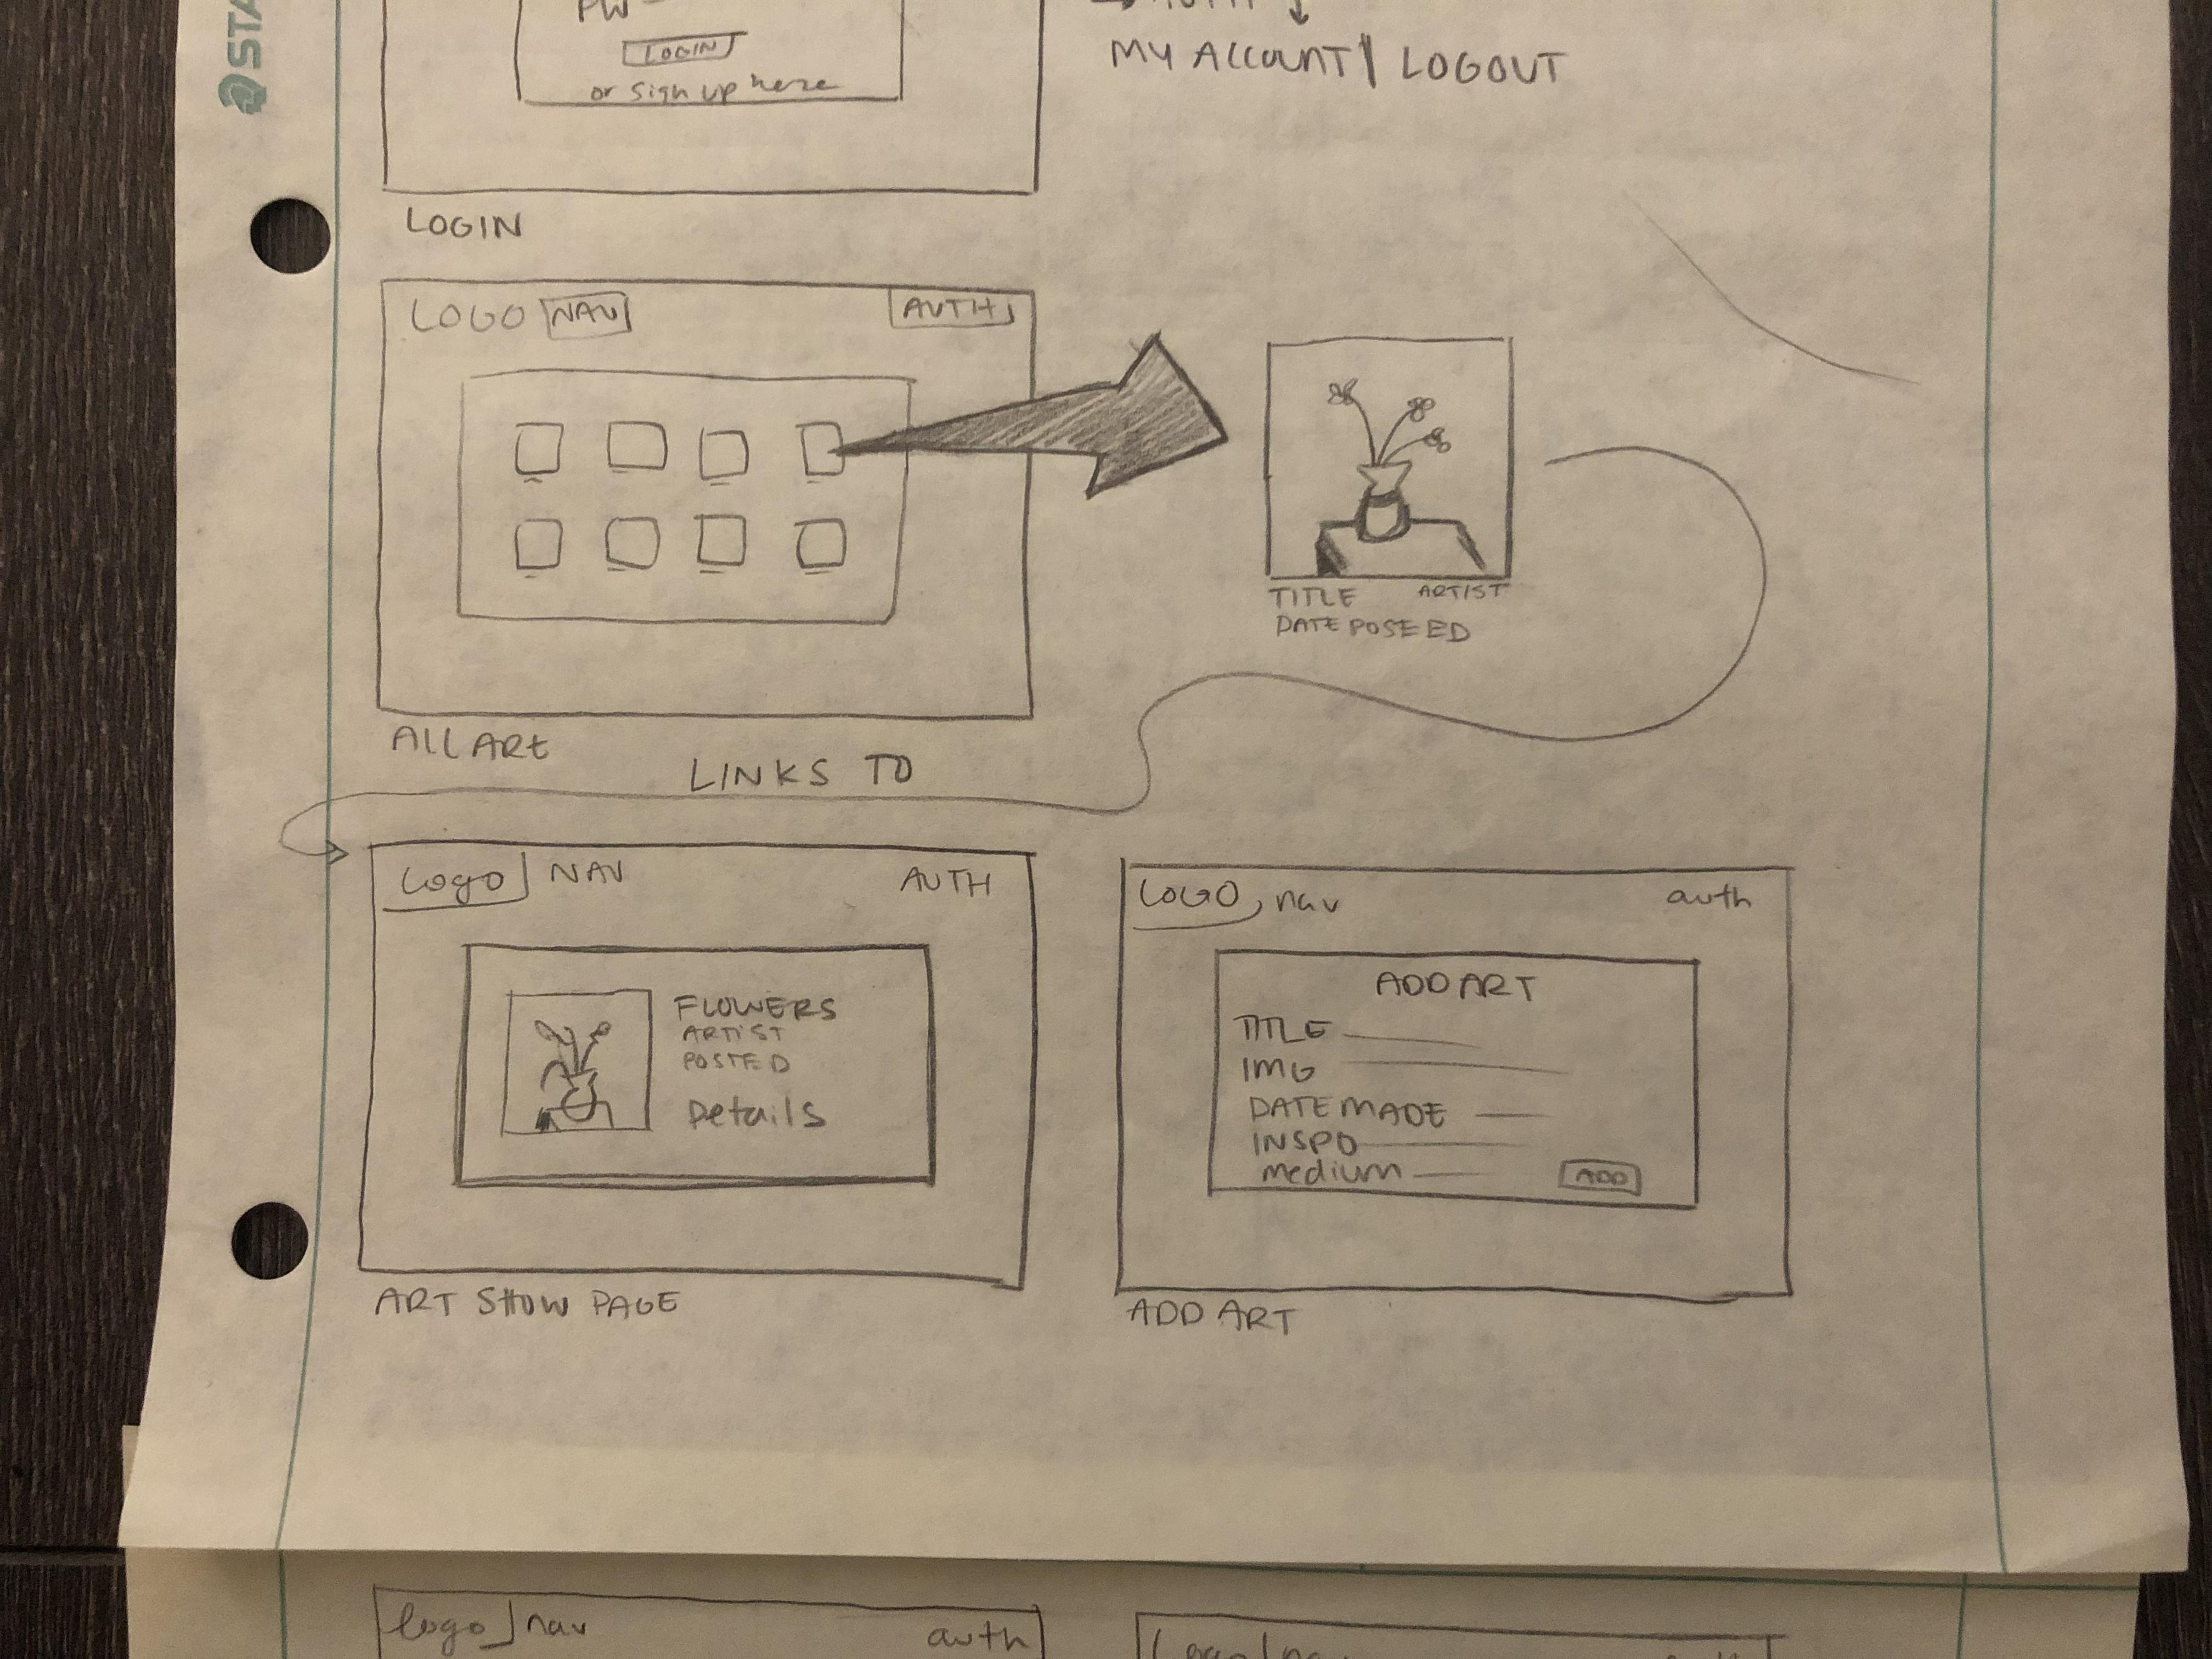 STA
PW
LOGIN
or sign up here
AUTH
MY ACCOUNT | LOGOUT
LOGIN
LOGO NAV AUTH
TITLE ARTIST
DATE POSEED
ALL ART
LINKS TO
Logo NAV AUTH
FLOWERS
ARTIST
POSTED
Details
ART SHOW PAGE
LOGO nav auth
ADD ART
TITLE
IMG
DATE MADE
INSPO
medium
ADD
ADD ART
logo nav auth